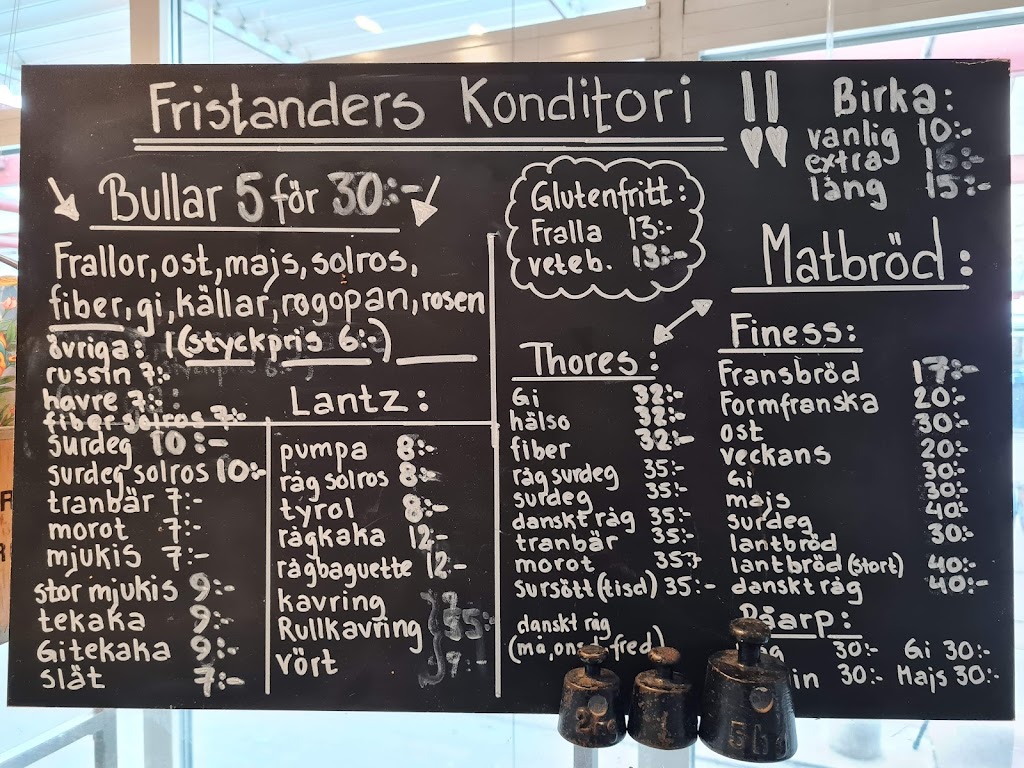 Fristanders Konditori
Birka:
vanlig 10:-
extra 15:-
lång 15:-
Bullar 5 för 30:-
Frallor, ost, majs, solros,
fiber, gi, källar, rogopan, rosen
(styckpris 6:-)
övriga:
russin 7:-
havre 7:-
fiber solros 7:-
surdeg 10:-
surdeg solros 10:-
tranbär 7:-
morot 7:-
mjukis 7:-
stor mjukis 9:-
tekaka 9:-
Gitekaka 9:-
slät 7:-
Lantz:
pumpa 8:-
råg solros 8:-
tyrol 8:-
rågkaka 12:-
rågbaguette 12:-
kavring
Rullkavring 35:-
vört
Glutenfritt:
Fralla 13:-
veteb. 13:-
Thores:
Gi 32:-
hälso 32:-
fiber 32:-
råg surdeg 35:-
surdeg 35:-
danskt råg 35:-
tranbär 35:-
morot 35:-
sursött (tisd) 35:-
danskt råg
(må, ons, fred)
Matbröd:
Finess:
Fransbröd 17:-
Formfranska 20:-
ost 30:-
veckans 20:-
Gi 30:-
majs 30:-
surdeg 40:-
lantbröd 30:-
lantbröd (stort) 40:-
danskt råg 40:-
Påarp:
30:- Gi 30:-
30:- Majs 30:-